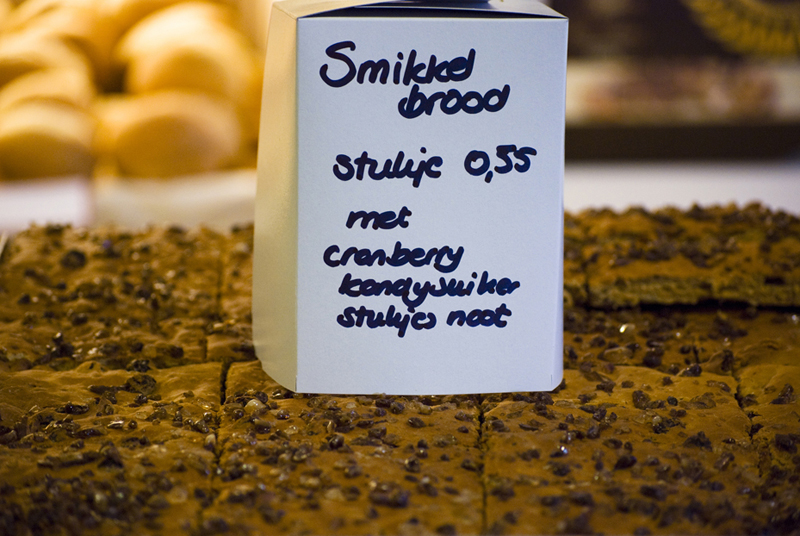 Smikkel
brood
stukje 0,55
met
cranberry
kandysuiker
stukjes noot